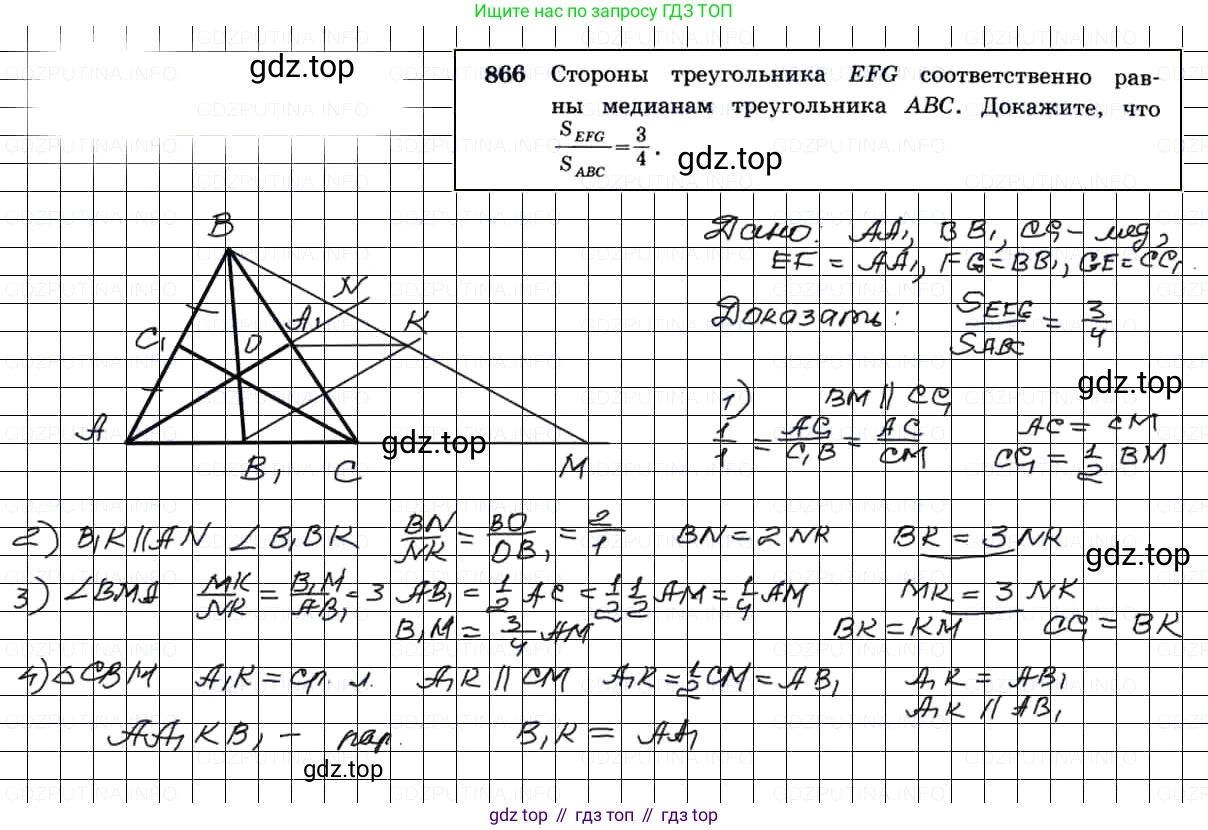 Ищите нас по запросу ГДЗ ТОП
gdz.top
866 Стороны треугольника EFG соответственно рав-
ны медианам треугольника ABC. Докажите, что
S EFG / S ABC = 3/4.
gdz.top
B
N
A₁
K
C₁
O
A
B₁
C
M
gdz.top
Дано: AA₁, BB₁, CC₁ – мед,
EF = AA₁, FG = BB₁, GE = CC₁.
Доказать: S EFG / S ABC = 3/4
gdz.top
1) BM || CC₁
1/1 = AC₁/C₁B = AC/CM AC = CM
CC₁ = 1/2 BM
2) B₁K || AN ∠B₁BK BN/NK = BO/OB₁ = 2/1 BN = 2NK BK = 3NK
gdz.top
3) ∠BMA MK/NK = B₁M/AB₁ = 3 AB₁ = 1/2 AC = 1/2 1/2 AM = 1/4 AM MK = 3 NK
B₁M = 3/4 AM BK = KM CC₁ = BK
4) △CBM A₁K = ср. л. A₁K || CM A₁K = 1/2 CM = AB₁ A₁K = AB₁
A₁K || AB₁
AA₁KB₁ – пар. B₁K = AA₁
gdz.top
gdz.top // гдз топ // gdz top